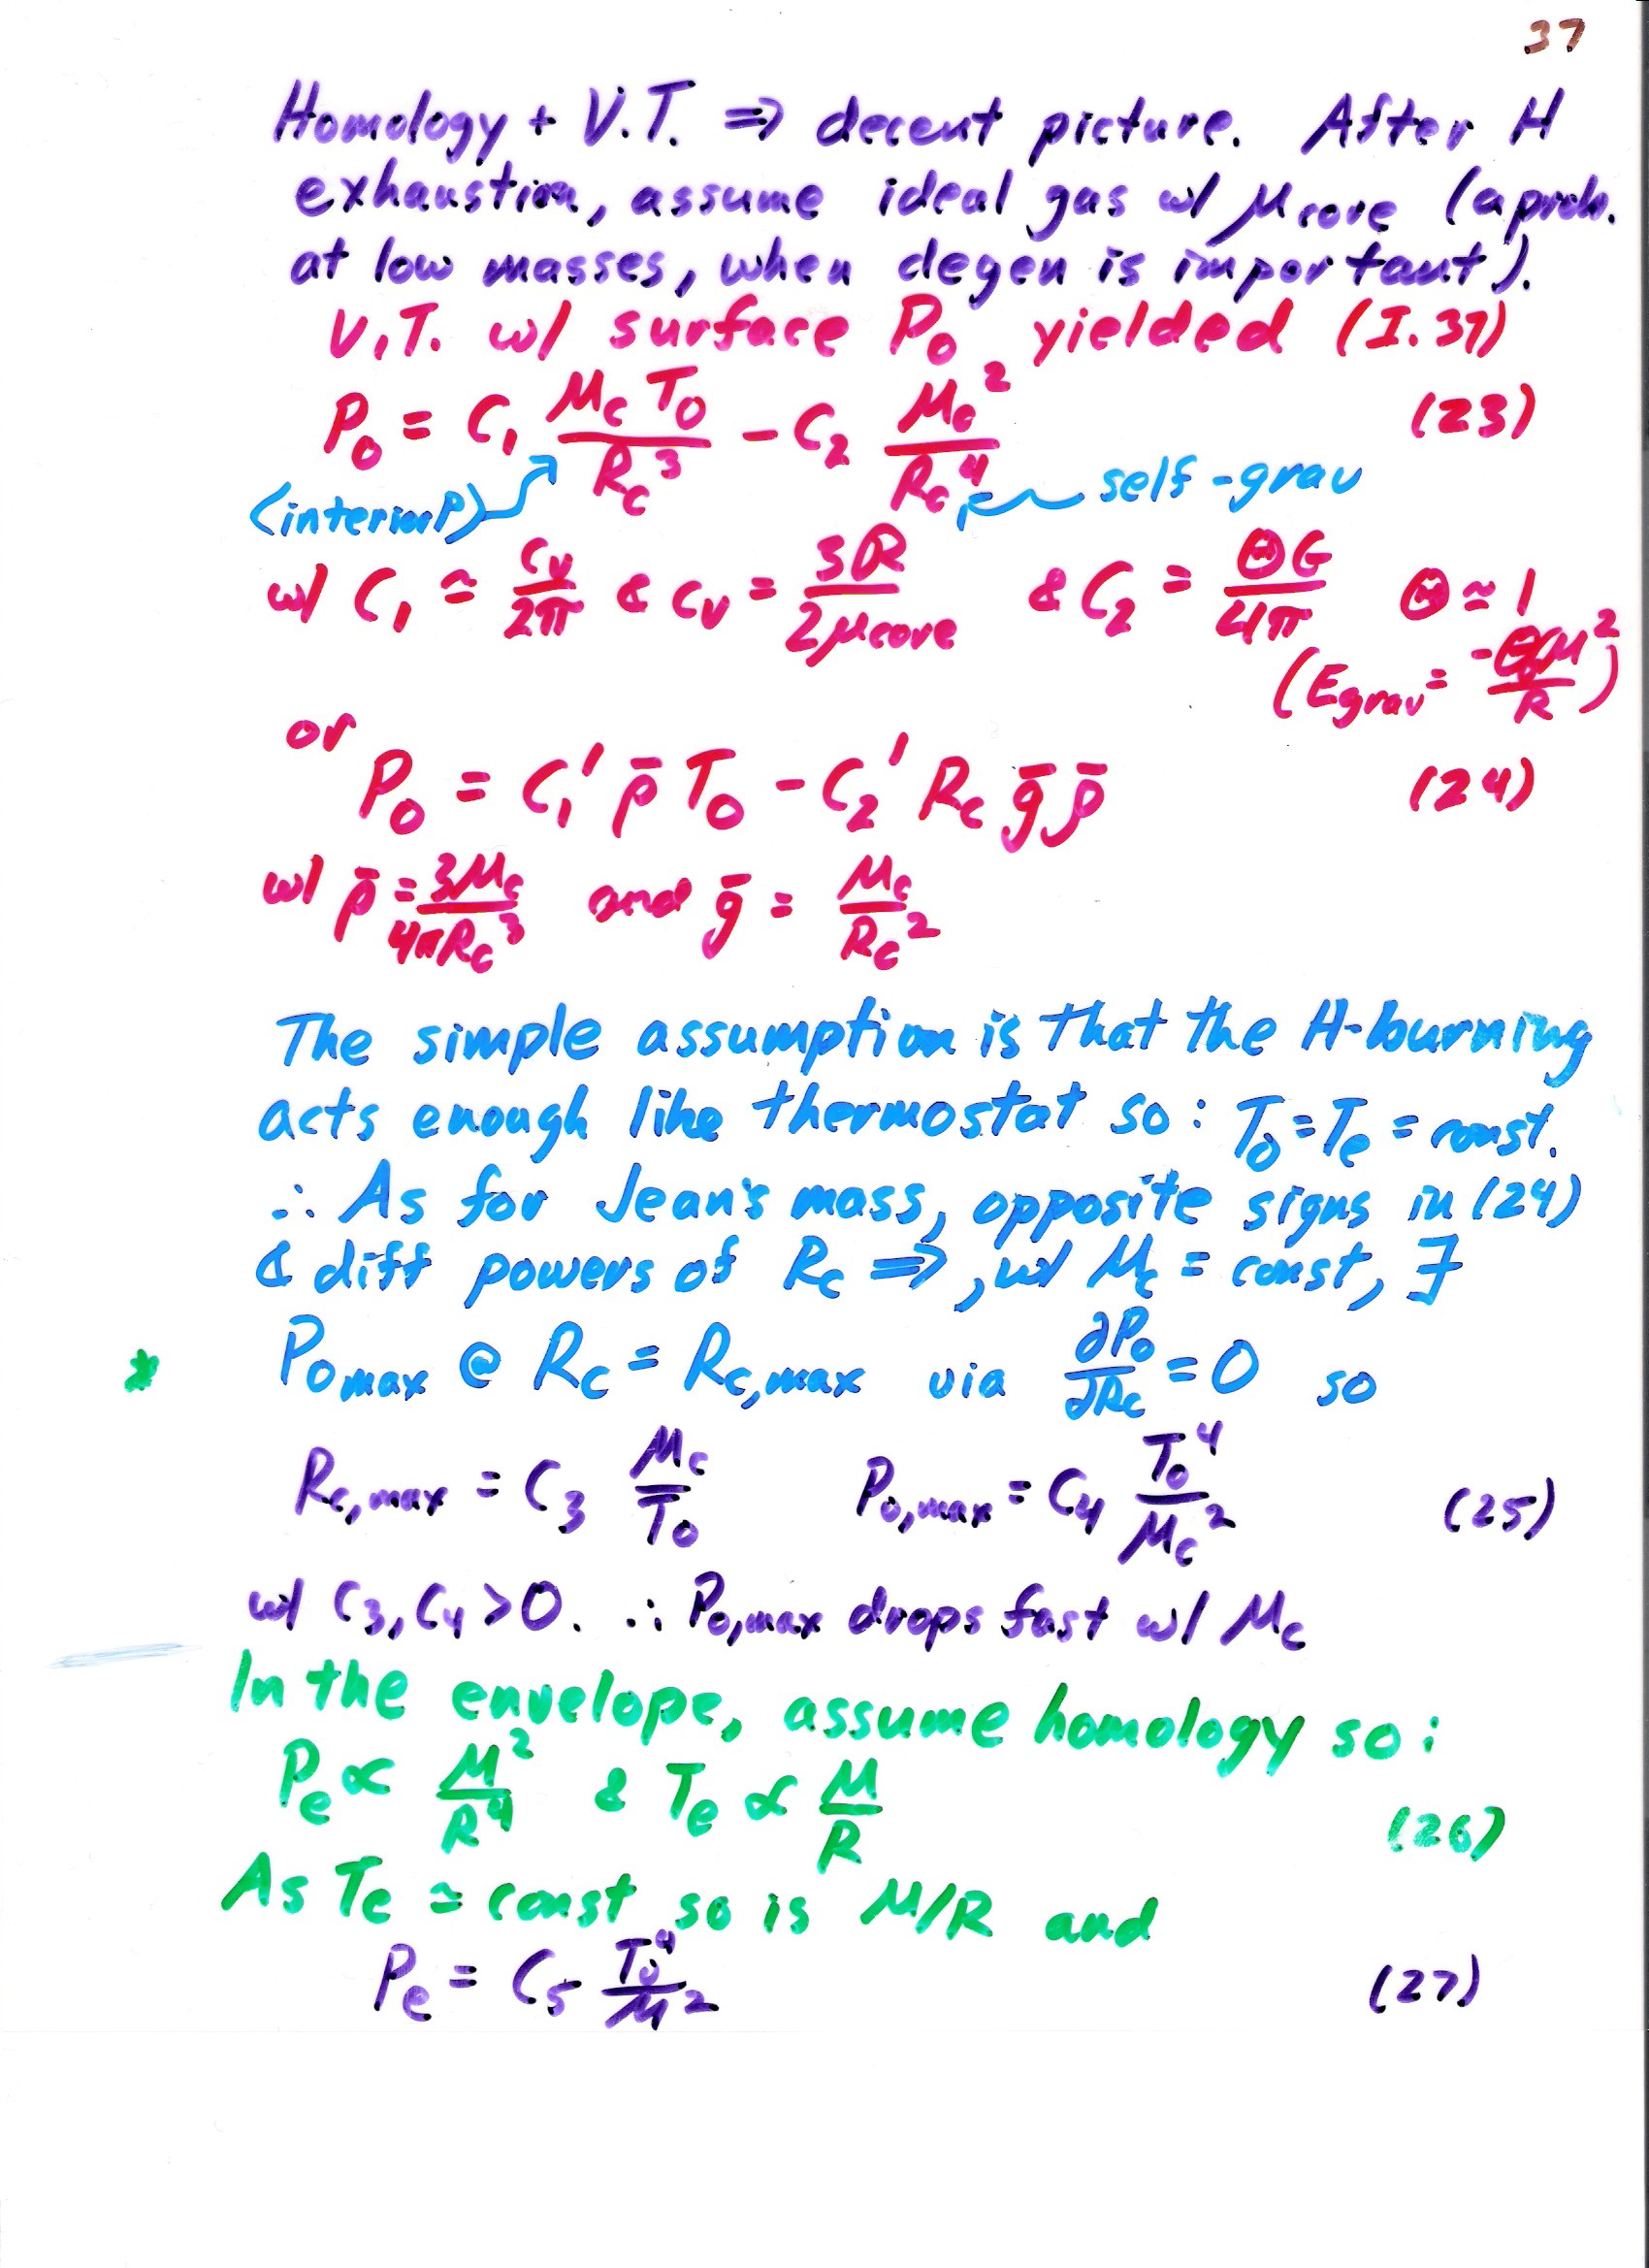 37
Homology + V.T. ⇒ decent picture. After H
exhaustion, assume ideal gas w/ μcore (a prob.
at low masses, when degen is important).
V.T. w/ surface P₀ yielded (I.37)
P₀ = C₁ M_c T₀ / R_c³ − C₂ M_c² / R_c⁴ (23)
(interior P) self-grav
w/ C₁ ≈ c_v / 2π & c_v = 3R / 2μcore & C₂ = ΘG / 4π Θ ≈ 1
(Egrav = −ΘGM² / R)
or
P₀ = C₁' ρ̄ T₀ − C₂' R_c ḡ ρ̄ (24)
w/ ρ̄ = 3M_c / 4πR_c³ and ḡ = M_c / R_c²
The simple assumption is that the H-burning
acts enough like thermostat so: T₀ = T_e = const.
∴ As for Jean's mass, opposite signs in (24)
& diff powers of R_c ⇒, w/ M_c = const, ∃
* P₀max @ R_c = R_c,max via ∂P₀/∂R_c = 0 so
R_c,max = C₃ M_c / T₀ P₀,max = C₄ T₀⁴ / M_c² (25)
w/ C₃, C₄ > 0. ∴ P₀,max drops fast w/ M_c
In the envelope, assume homology so:
P_e ∝ M² / R⁴ & T_e ∝ M / R (26)
As T_e ≈ const, so is M/R and
P_e = C₅ T₀⁴ / M² (27)